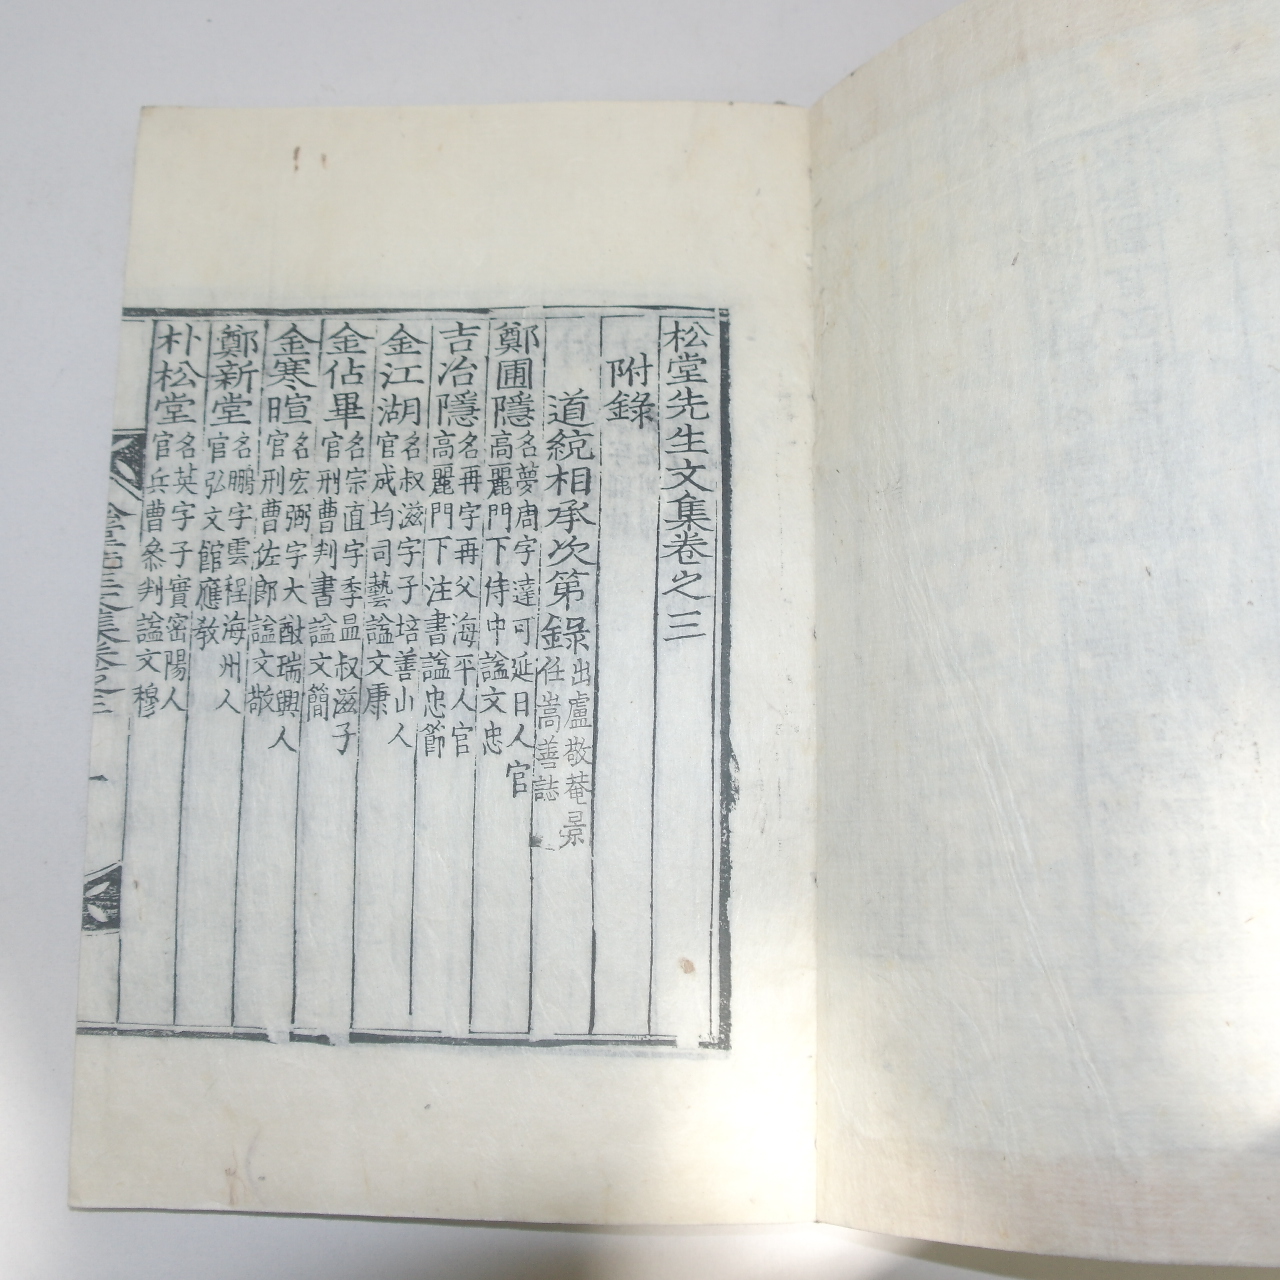 松堂先生文集卷之三
附錄
道統相承次第錄 出盧敬菴景任嵩善誌
鄭圃隱 名夢周字達可延日人官高麗門下侍中諡文忠
吉冶隱 名再字再父海平人官高麗門下注書諡忠節
金江湖 名叔滋字子培善山人官成均司藝諡文康
金佔畢 名宗直字季昷叔滋子官刑曹判書諡文簡
金寒暄 名宏弼字大猷瑞興人官刑曹佐郎諡文敬
鄭新堂 名鵬字雲程海州人官弘文館應敎
朴松堂 名英字子實密陽人官兵曹叅判諡文穆
松堂先生文集卷之三
一